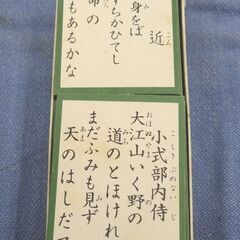 近
身をば
ちかひてし
命の
もあるかな
小式部内侍
大江山いく野の
道のとほけれ
まだふみも見ず
天のはしだ